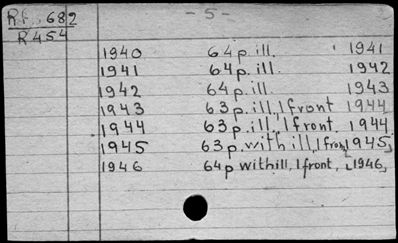 Rf. 682 - 5 -
R454
1940 64 p. ill. 1941
1941 64 p. ill. 1942
1942 64 p. ill. 1943
1943 63 p. ill, 1 front 1944
1944 63 p. ill, 1 front. 1944
1945 63 p. with ill, 1 front [1945]
1946 64 p with ill, 1 front, [1946]